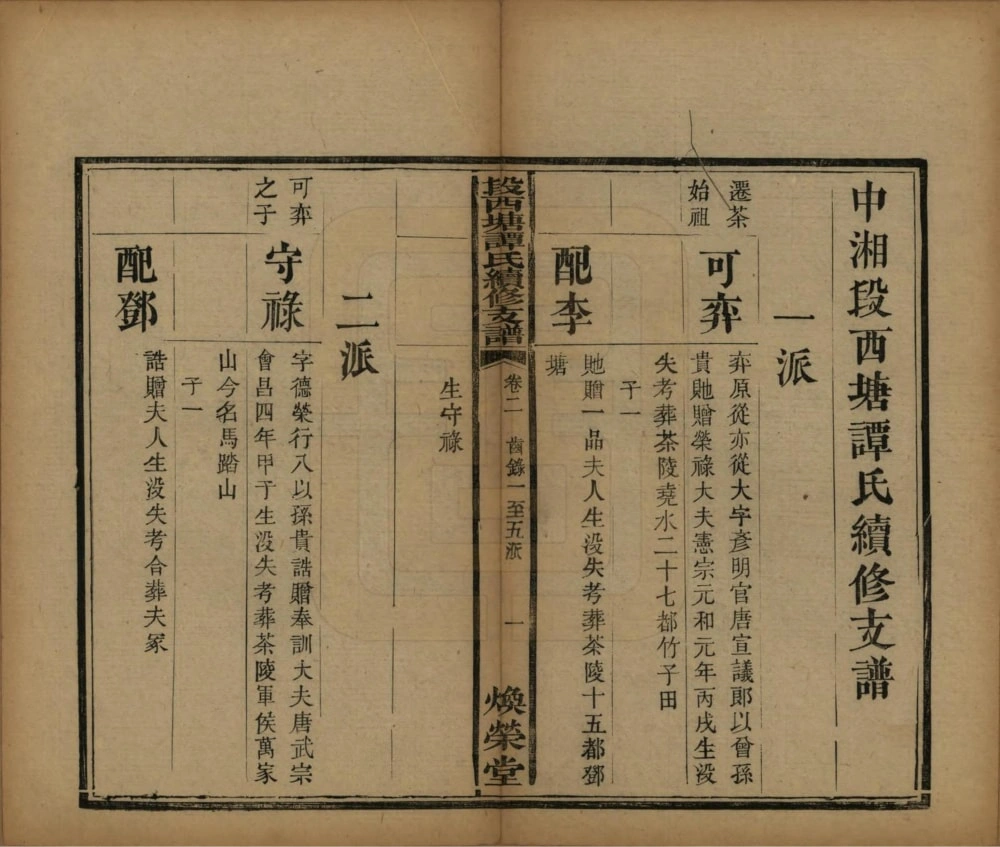 中湘段西塘譚氏續修支譜
一派
遷茶
始祖
可弈
弈原從亦從大字彥明官唐宣議郎以曾孫
貴貤贈榮祿大夫憲宗元和元年丙戌生沒
失考葬茶陵堯水二十七都竹子田
子一
配李
貤贈一品夫人生沒失考葬茶陵十五都鄧
塘
段西塘譚氏續修支譜
卷二
齒錄一至五派
一
煥榮堂
生守祿
二派
可弈
之子
守祿
字德榮行八以孫貴誥贈奉訓大夫唐武宗
會昌四年甲子生沒失考葬茶陵軍侯萬家
山今名馬踏山
子一
配鄧
誥贈夫人生沒失考合葬夫冢